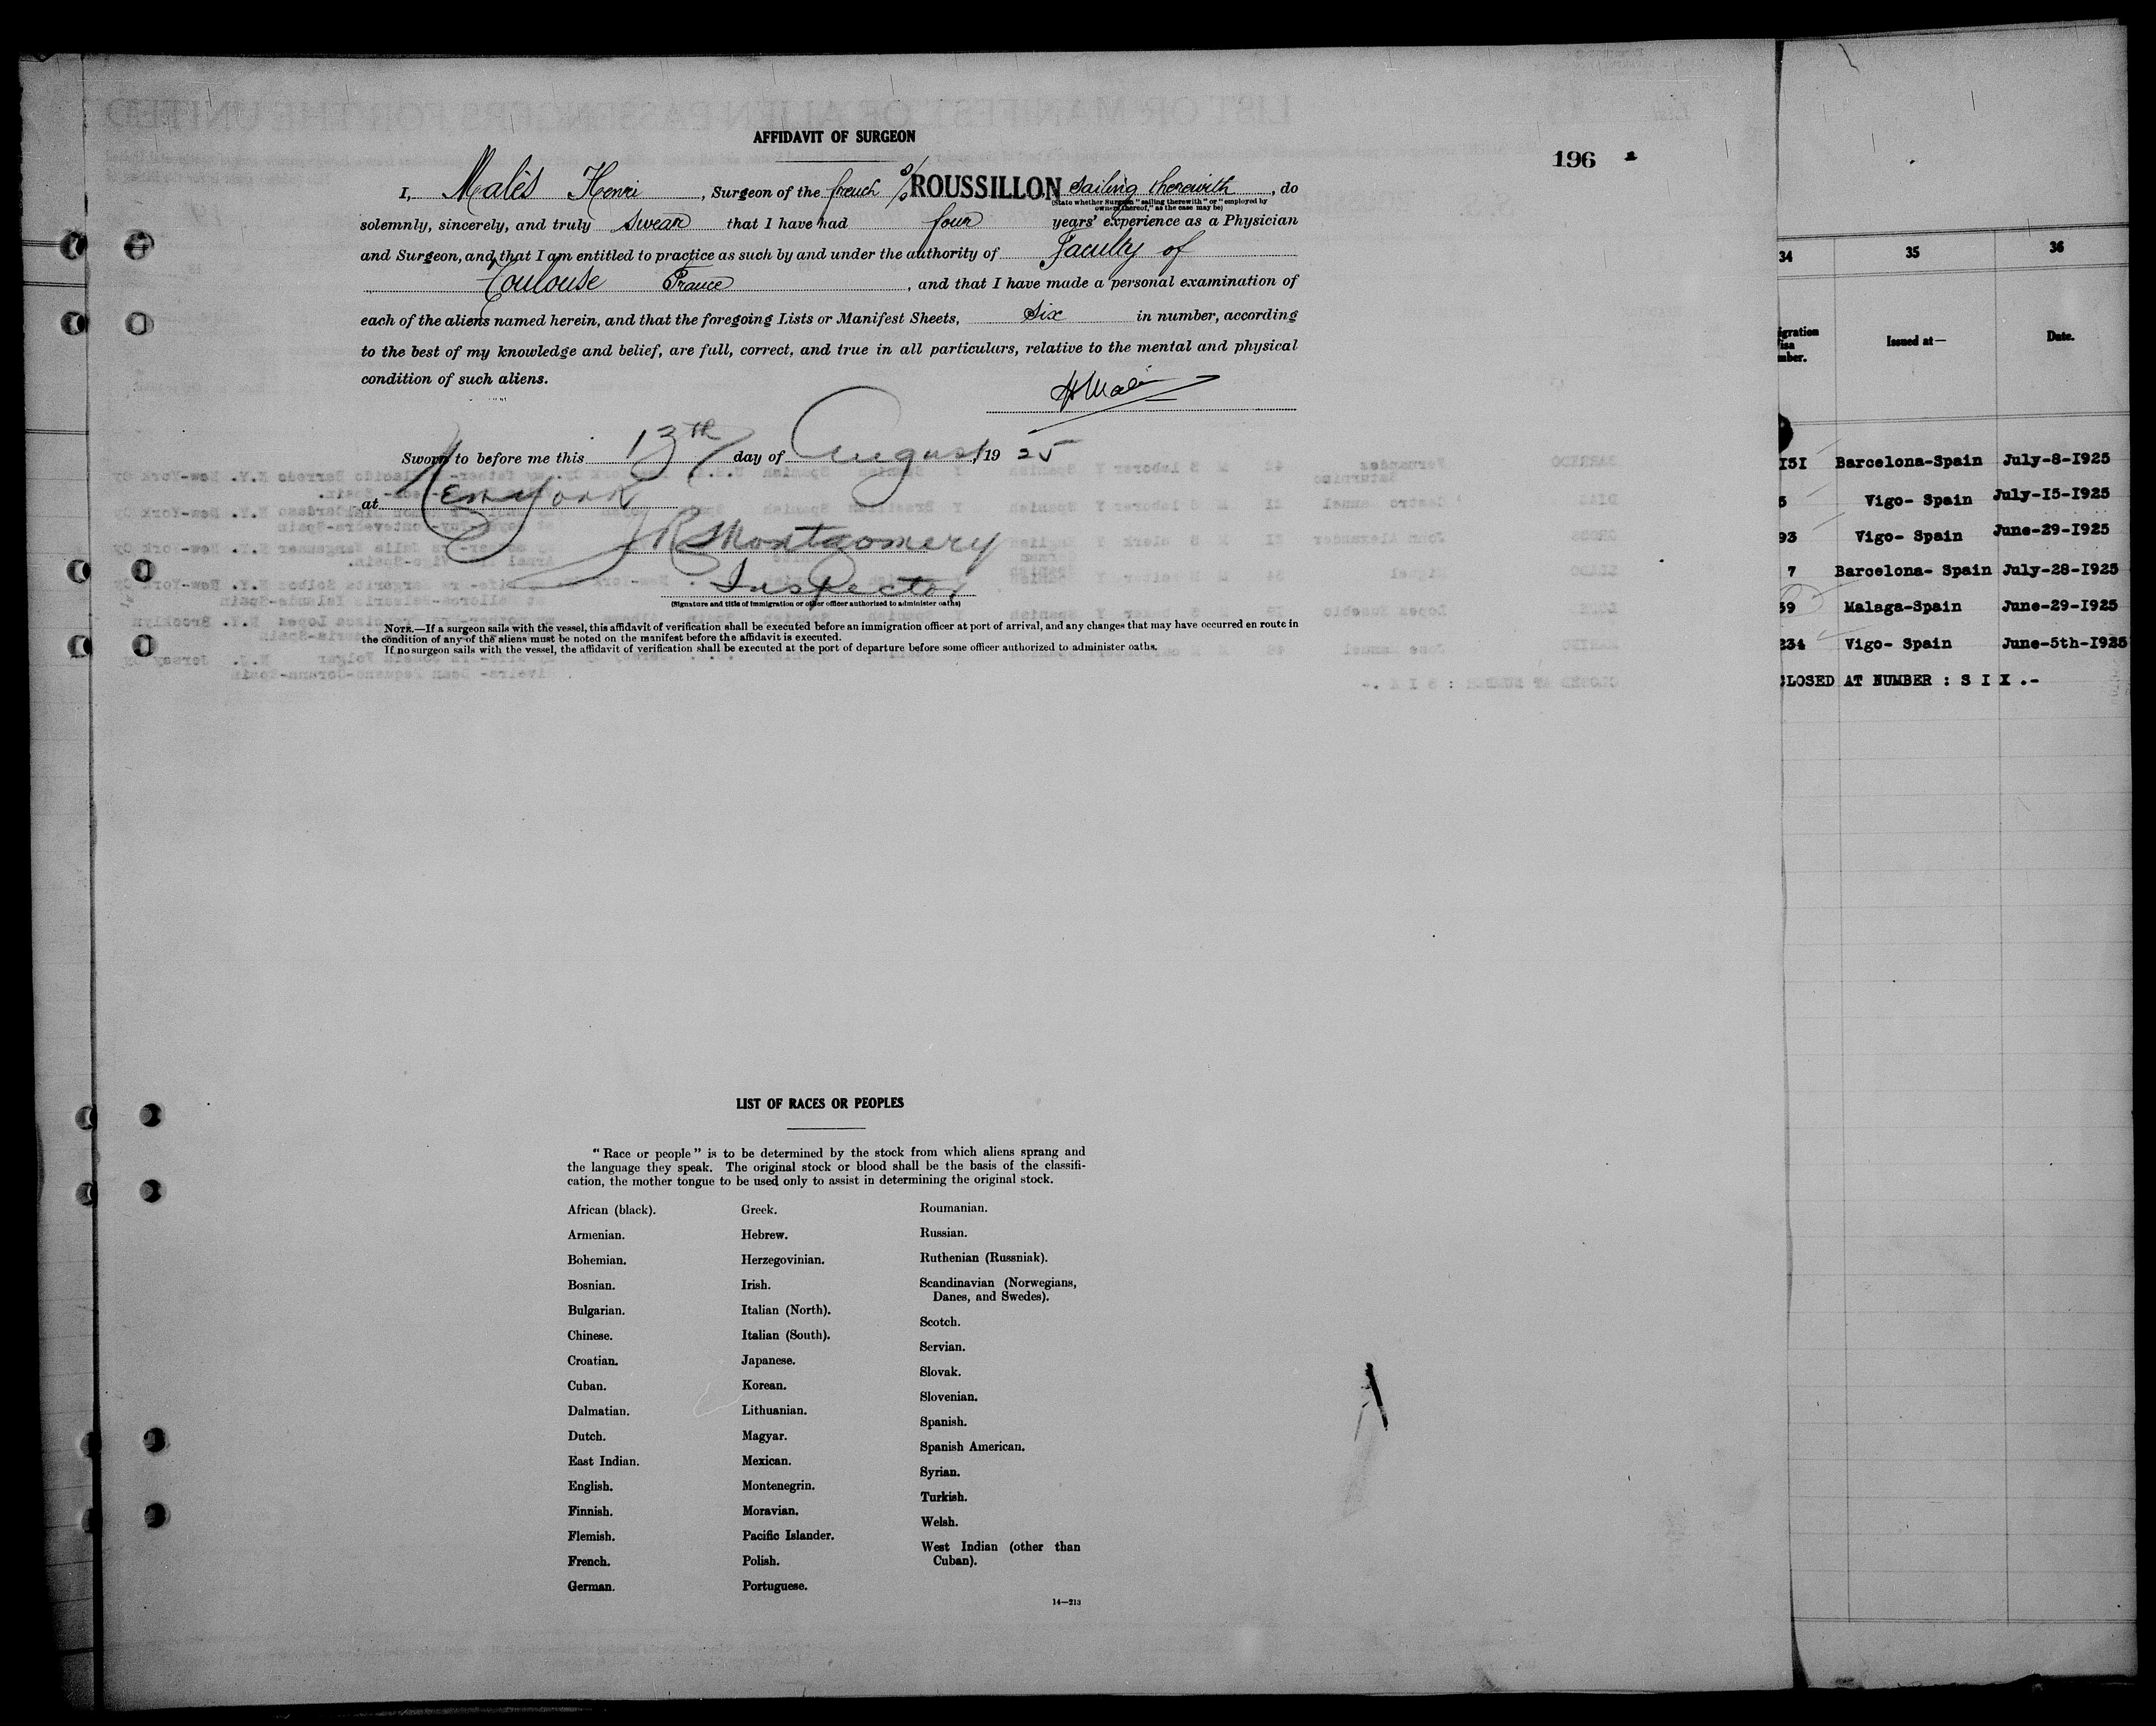 AFFIDAVIT OF SURGEON
196
I, Malès Henri, Surgeon of the french s/s ROUSSILLON sailing therewith, do
(State whether Surgeon "sailing therewith" or "employed by
owners thereof," as the case may be)
solemnly, sincerely, and truly swear that I have had four years' experience as a Physician
and Surgeon, and that I am entitled to practice as such by and under the authority of Faculty of
Toulouse France, and that I have made a personal examination of
each of the aliens named herein, and that the foregoing Lists or Manifest Sheets, Six in number, according
to the best of my knowledge and belief, are full, correct, and true in all particulars, relative to the mental and physical
condition of such aliens.
Sworn to before me this 13th day of August, 1925
at New York
JRS Montgomery
Inspector
(Signature and title of immigration or other officer authorized to administer oaths)
NOTE.—If a surgeon sails with the vessel, this affidavit of verification shall be executed before an immigration officer at port of arrival, and any changes that may have occurred en route in
the condition of any of the aliens must be noted on the manifest before the affidavit is executed.
If no surgeon sails with the vessel, the affidavit of verification shall be executed at the port of departure before some officer authorized to administer oaths.
LIST OF RACES OR PEOPLES
"Race or people" is to be determined by the stock from which aliens sprang and
the language they speak. The original stock or blood shall be the basis of the classifi-
cation, the mother tongue to be used only to assist in determining the original stock.
African (black).
Armenian.
Bohemian.
Bosnian.
Bulgarian.
Chinese.
Croatian.
Cuban.
Dalmatian.
Dutch.
East Indian.
English.
Finnish.
Flemish.
French.
German.
Greek.
Hebrew.
Herzegovinian.
Irish.
Italian (North).
Italian (South).
Japanese.
Korean.
Lithuanian.
Magyar.
Mexican.
Montenegrin.
Moravian.
Pacific Islander.
Polish.
Portuguese.
Roumanian.
Russian.
Ruthenian (Russniak).
Scandinavian (Norwegians,
Danes, and Swedes).
Scotch.
Servian.
Slovak.
Slovenian.
Spanish.
Spanish American.
Syrian.
Turkish.
Welsh.
West Indian (other than
Cuban).
14—213
34 35 36
igration
isa
mber.
Issued at—
Date.
151 Barcelona-Spain July-8-I925
5 Vigo- Spain July-I5-I925
93 Vigo- Spain June-29-I925
7 Barcelona- Spain July-28-I925
59 Malaga-Spain June-29-I925
234 Vigo- Spain June-5th-I925
CLOSED AT NUMBER : S I X .-